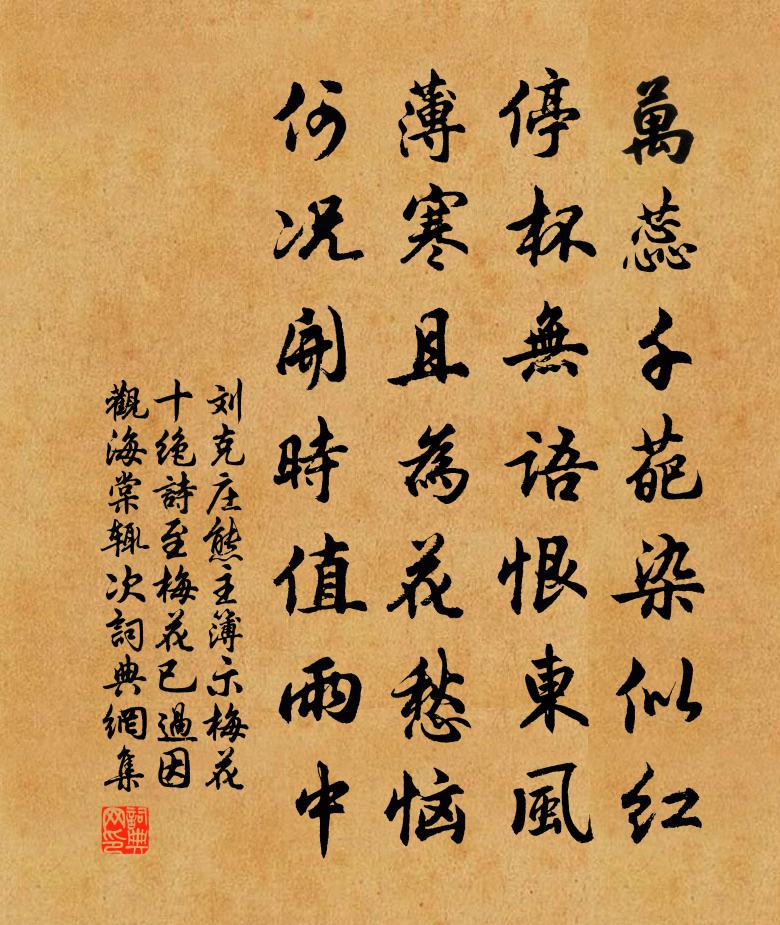 萬蕊千葩染似红
停杯無語恨東風
薄寒且為花愁恼
何况開時值雨中
刘克庄熊主簿示梅花
十绝詩至梅花已過因
觀海棠辄次詞典網集
詞典
网印